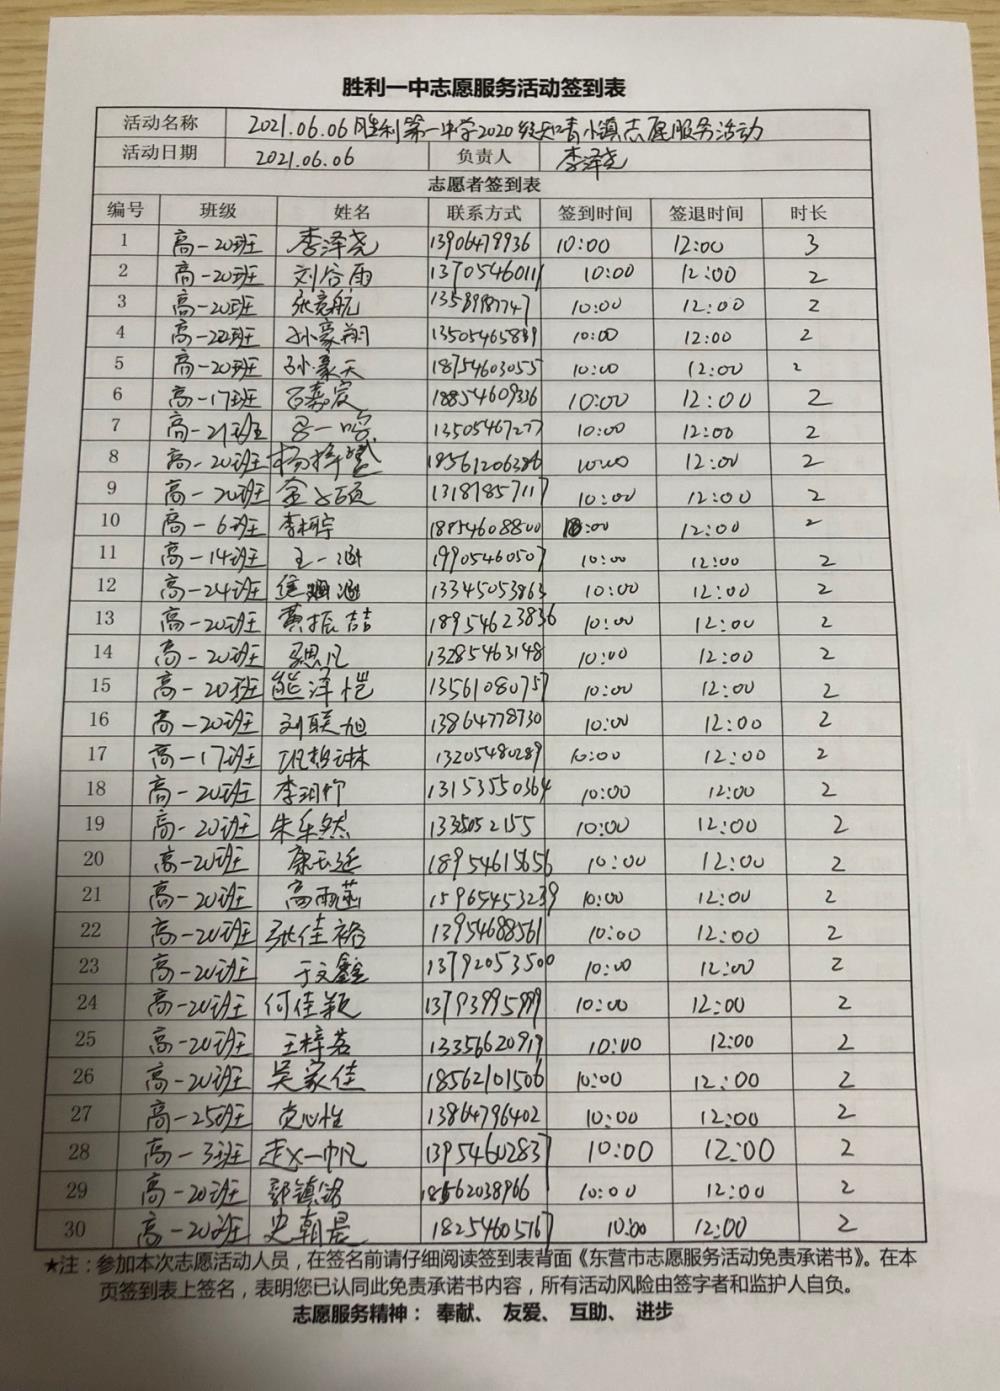 胜利一中志愿服务活动签到表
活动名称 2021.06.06胜利第一中学2020级知青小镇志愿服务活动
活动日期 2021.06.06 负责人 李泽尧
志愿者签到表
编号 班级 姓名 联系方式 签到时间 签退时间 时长
1 高一20班 李泽尧 13906479936 10:00 12:00 3
2 高一20班 刘谷雨 13705460119 10:00 12:00 2
3 高一20班 张亮航 13589987747 10:00 12:00 2
4 高一22班 孙豪翔 13505465839 10:00 12:00 2
5 高一20班 孙豪天 18754603055 10:00 12:00 2
6 高一17班 18854609336 10:00 12:00 2
7 高一21班 13505467277 10:00 12:00 2
8 高一20班 杨梓斌 18561206386 10:00 12:00 2
9 高一20班 13181857117 10:00 12:00 2
10 高一6班 李柯宇 18854608800 10:00 12:00 2
11 高一14班 王一涵 19905460507 10:00 12:00 2
12 高一24班 13345053863 10:00 12:00 2
13 高一20班 黄振喆 18954623836 10:00 12:00 2
14 高一20班 13285463148 10:00 12:00 2
15 高一20班 熊泽恺 13561080757 10:00 12:00 2
16 高一20班 刘联旭 13864778730 10:00 12:00 2
17 高一17班 13205480289 10:00 12:00 2
18 高一20班 李玥竹 13153550364 10:00 12:00 2
19 高一20班 朱乐然 1335052155 10:00 12:00 2
20 高一20班 康玉延 18954615656 10:00 12:00 2
21 高一20班 高雨菡 15965453239 10:00 12:00 2
22 高一20班 张佳裕 13954688561 10:00 12:00 2
23 高一20班 于文鑫 13792053500 10:00 12:00 2
24 高一20班 何佳颖 13793995999 10:00 12:00 2
25 高一20班 王梓茗 13356620919 10:00 12:00 2
26 高一20班 吴家佳 18562101506 10:00 12:00 2
27 高一25班 党心怡 13864796402 10:00 12:00 2
28 高一3班 赵一帆 13954602837 10:00 12:00 2
29 高一20班 郭镇铭 18562038966 10:00 12:00 2
30 高一20班 史朝晨 18254605167 10:00 12:00 2
★注：参加本次志愿活动人员，在签名前请仔细阅读签到表背面《东营市志愿服务活动免责承诺书》。在本
页签到表上签名，表明您已认同此免责承诺书内容，所有活动风险由签字者和监护人自负。
志愿服务精神： 奉献、 友爱、 互助、 进步